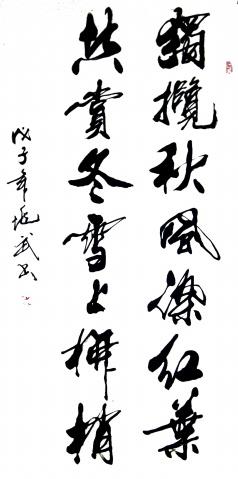 獨攬秋風染紅葉
共賞冬雪上柳梢
戊子年武书